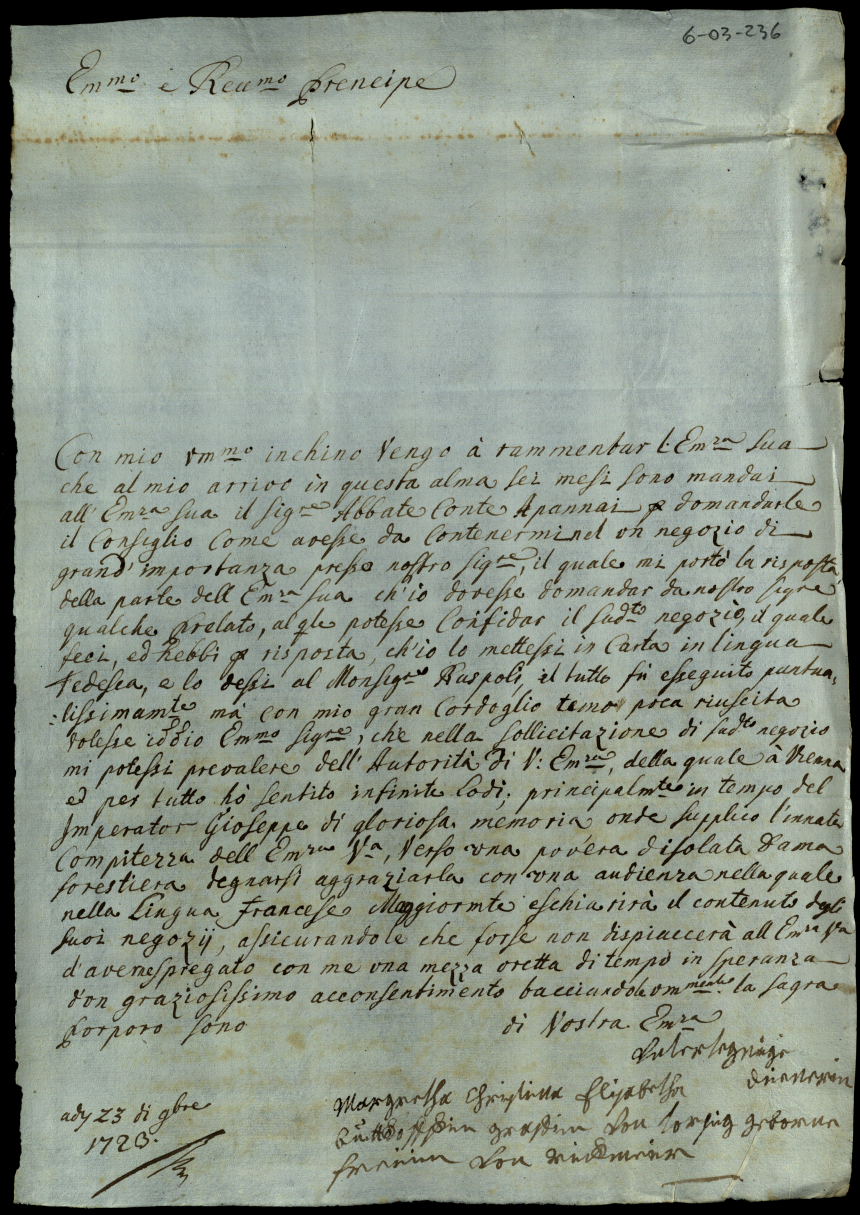 6-03-236
Emmo e Reumo Prencipe
Con mio vmmo inchino Vengo à rammentar l'Emza Sua
che al mio arrivo in questa alma sei mesi sono mandai
all'Emza sua il sigre Abbate Conte Apannai p domandarle
il Consiglio Come avesse da Contenermi nel vn negozio di
grand'importanza presso nostro sigre, il quale mi portò la risposta
della parte dell'Emza sua ch'io dovesse domandar da nostro sigre
qualche Prelato, al qle potesse Confidar il sudto negozio, il quale
feci, ed hebbi p risposta, ch'io lo mettessi in Carta in lingua
Tedesca, e lo dessi al Monsigre Ruspoli, il tutto fù esseguito puntua,
:lissimamte mà con mio gran Cordoglio temo poca riuscita
volesse iddio Emmo sigre, che nella sollicitazione di sudto negozio
mi potessi prevalere dell'Autorità di V: Emza, della quale à Vienna
ed per tutto hò sentito infinite Lodi, principalmte in tempo del
Imperator Gioseppe di gloriosa memoria onde supplico l'innata
Compitezza dell'Emza Va, Verso vna povera disolata Dama
forestiera degnarsi aggraziarla con vna audienza nella quale
nella Lingua francese Maggiormte eschiarirà il contenuto degli
suoi negozij, assicurandole che forse non dispiaccerà all Emza Va
d'aver spregato con me vna mezza oretta di tempo in speranza
d'vn graziosissimo acconsentimento bacciandole vmmente la sagra
Porpora sono
di Vostra Emza
dienerin
Margretha Christina Elisabetha
Gräffin Von geborne
freiin Von
ady 23 di 9bre
1723.